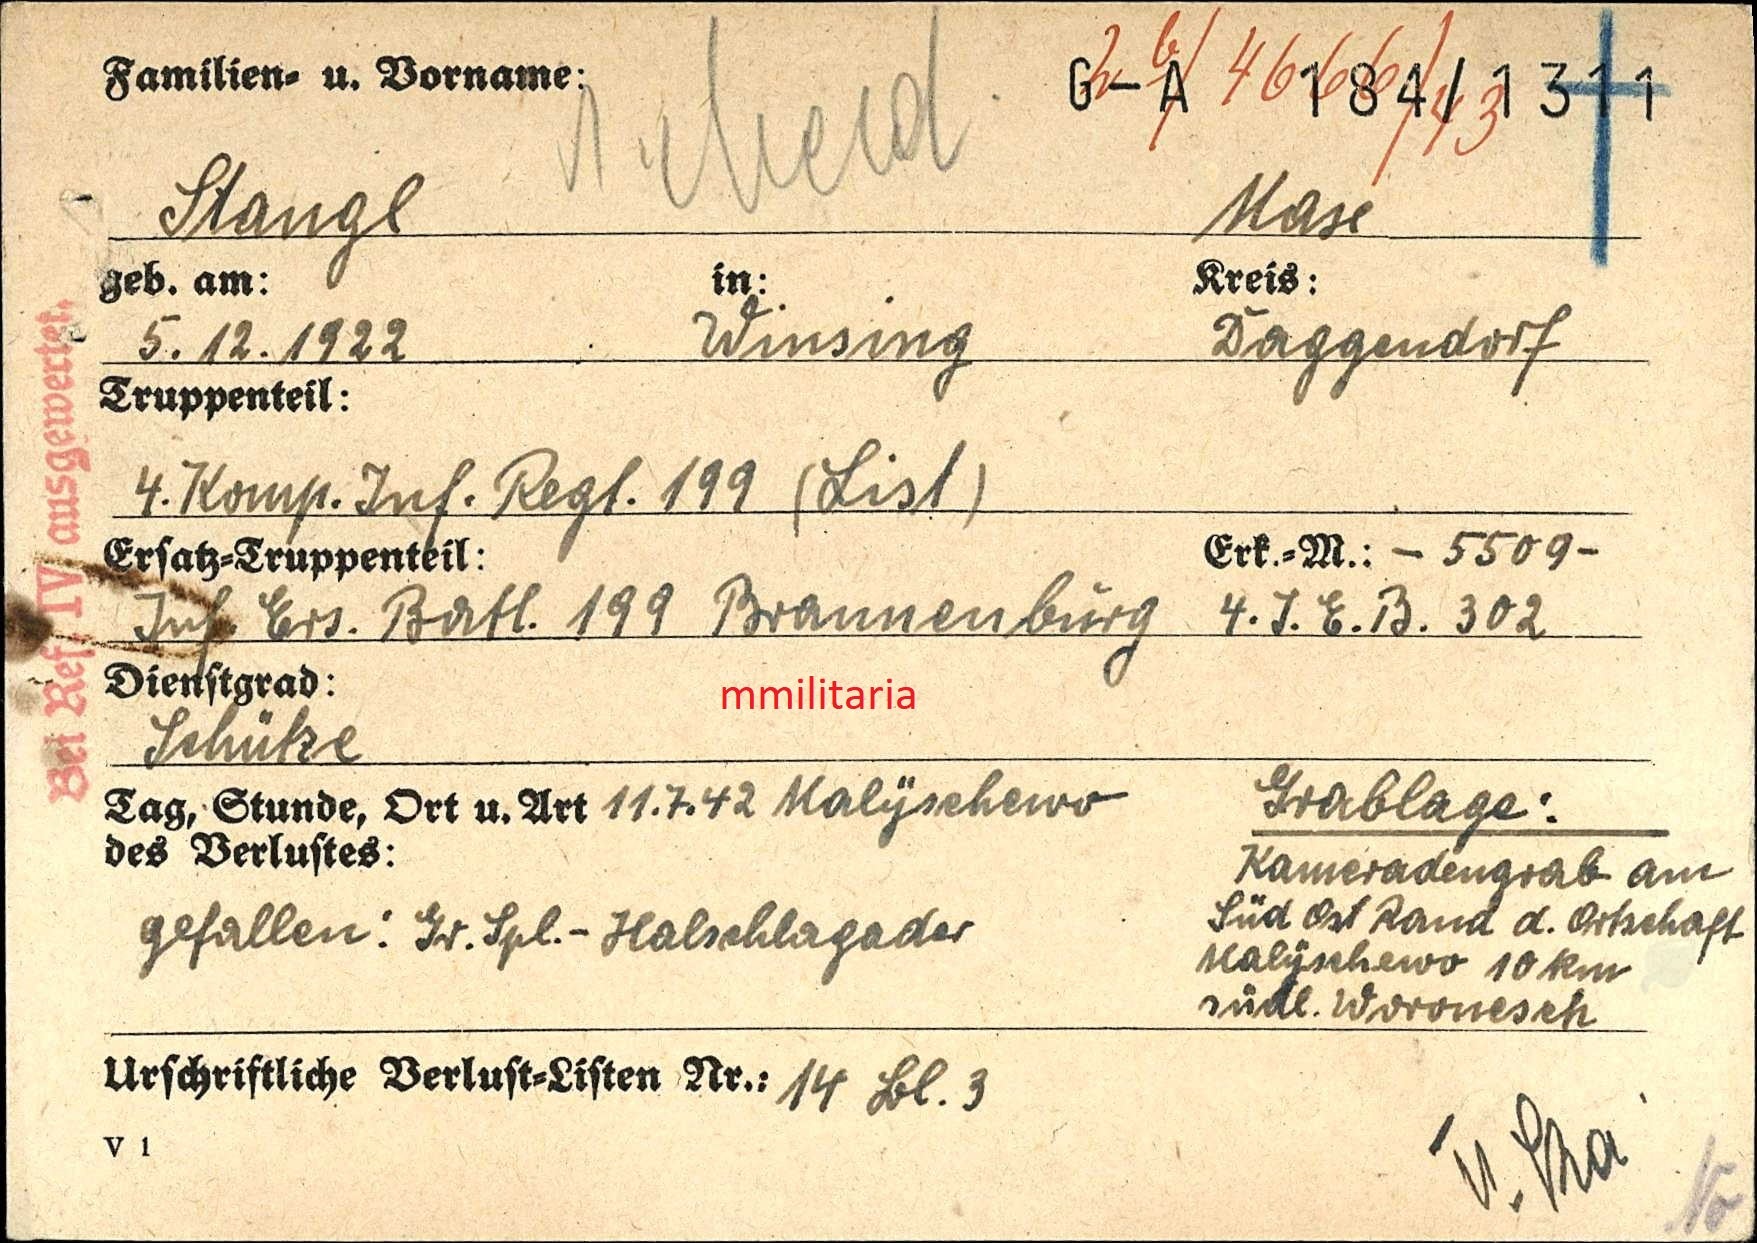 Familien- u. Vorname:
G-A 184/1311
2 b/ 4666/43
Stangl
geb. am: in: Kreis:
5.12.1922 Winsing Daggendorf
Truppenteil:
4. Komp. Inf. Regt. 199 (List)
Ersatz-Truppenteil: Erk.-M.: - 5509 -
Inf. Ers. Batl. 199 Brannenburg 4. J. E. B. 302
Dienstgrad:
mmilitaria
Schütze
Tag, Stunde, Ort u. Art 11.7.42 Malÿschewo
des Verlustes:
gefallen: Gr. Spl. - Halschlagader
Grablage:
Kameradengrab am
Süd Ost Rand d. Ortschaft
Malÿschewo 10 km
südl. Woronesch
Urschriftliche Verlust-Listen Nr.: 14 Bl. 3
V 1
Bei Ref. IV ausgewertet.